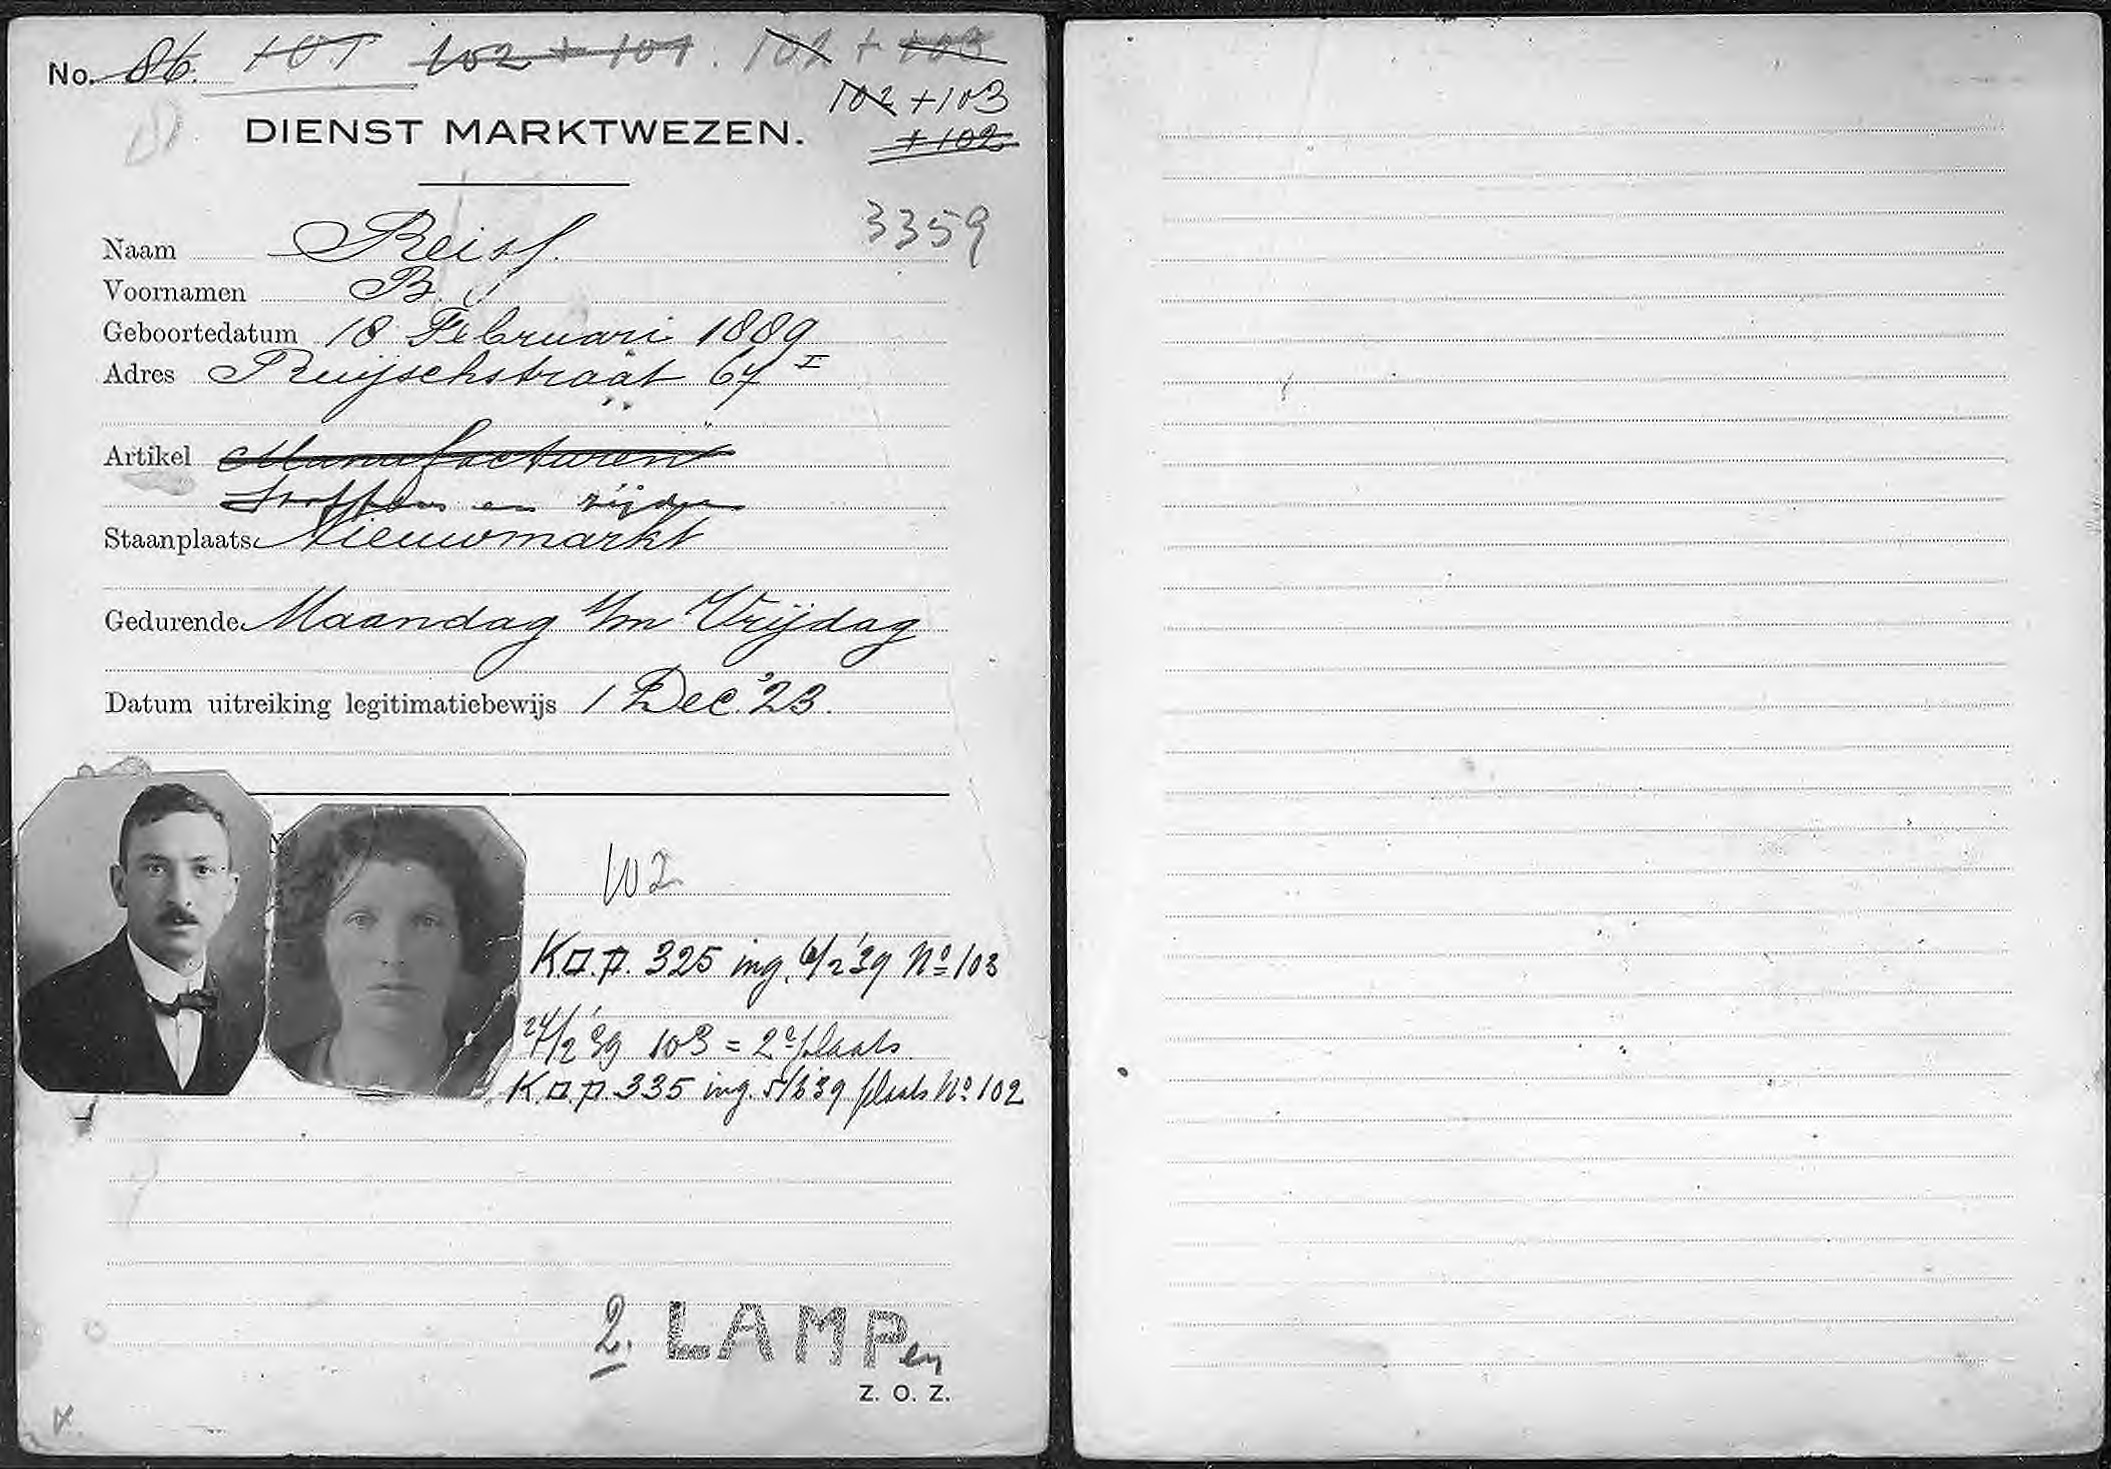 No. 86. 101 102 + 101. 102 + 103
102 + 103
DIENST MARKTWEZEN.
+ 102
3359
Naam Reiss.
Voornamen B.
Geboortedatum 18 Februari 1889
Adres Ruijschstraat 67 I
Artikel Manufacturen
Stoffen en zijden
Staanplaats Nieuwmarkt
Gedurende Maandag t/m Vrijdag
Datum uitreiking legitimatiebewijs 1 Dec. '23.
102
325 ing. 6/2 '39 No 103
24/2 '39 103 = 2e plaats
335 ing. 5/3 '39 plaats No 102
2. LAMPen
Z. O. Z.